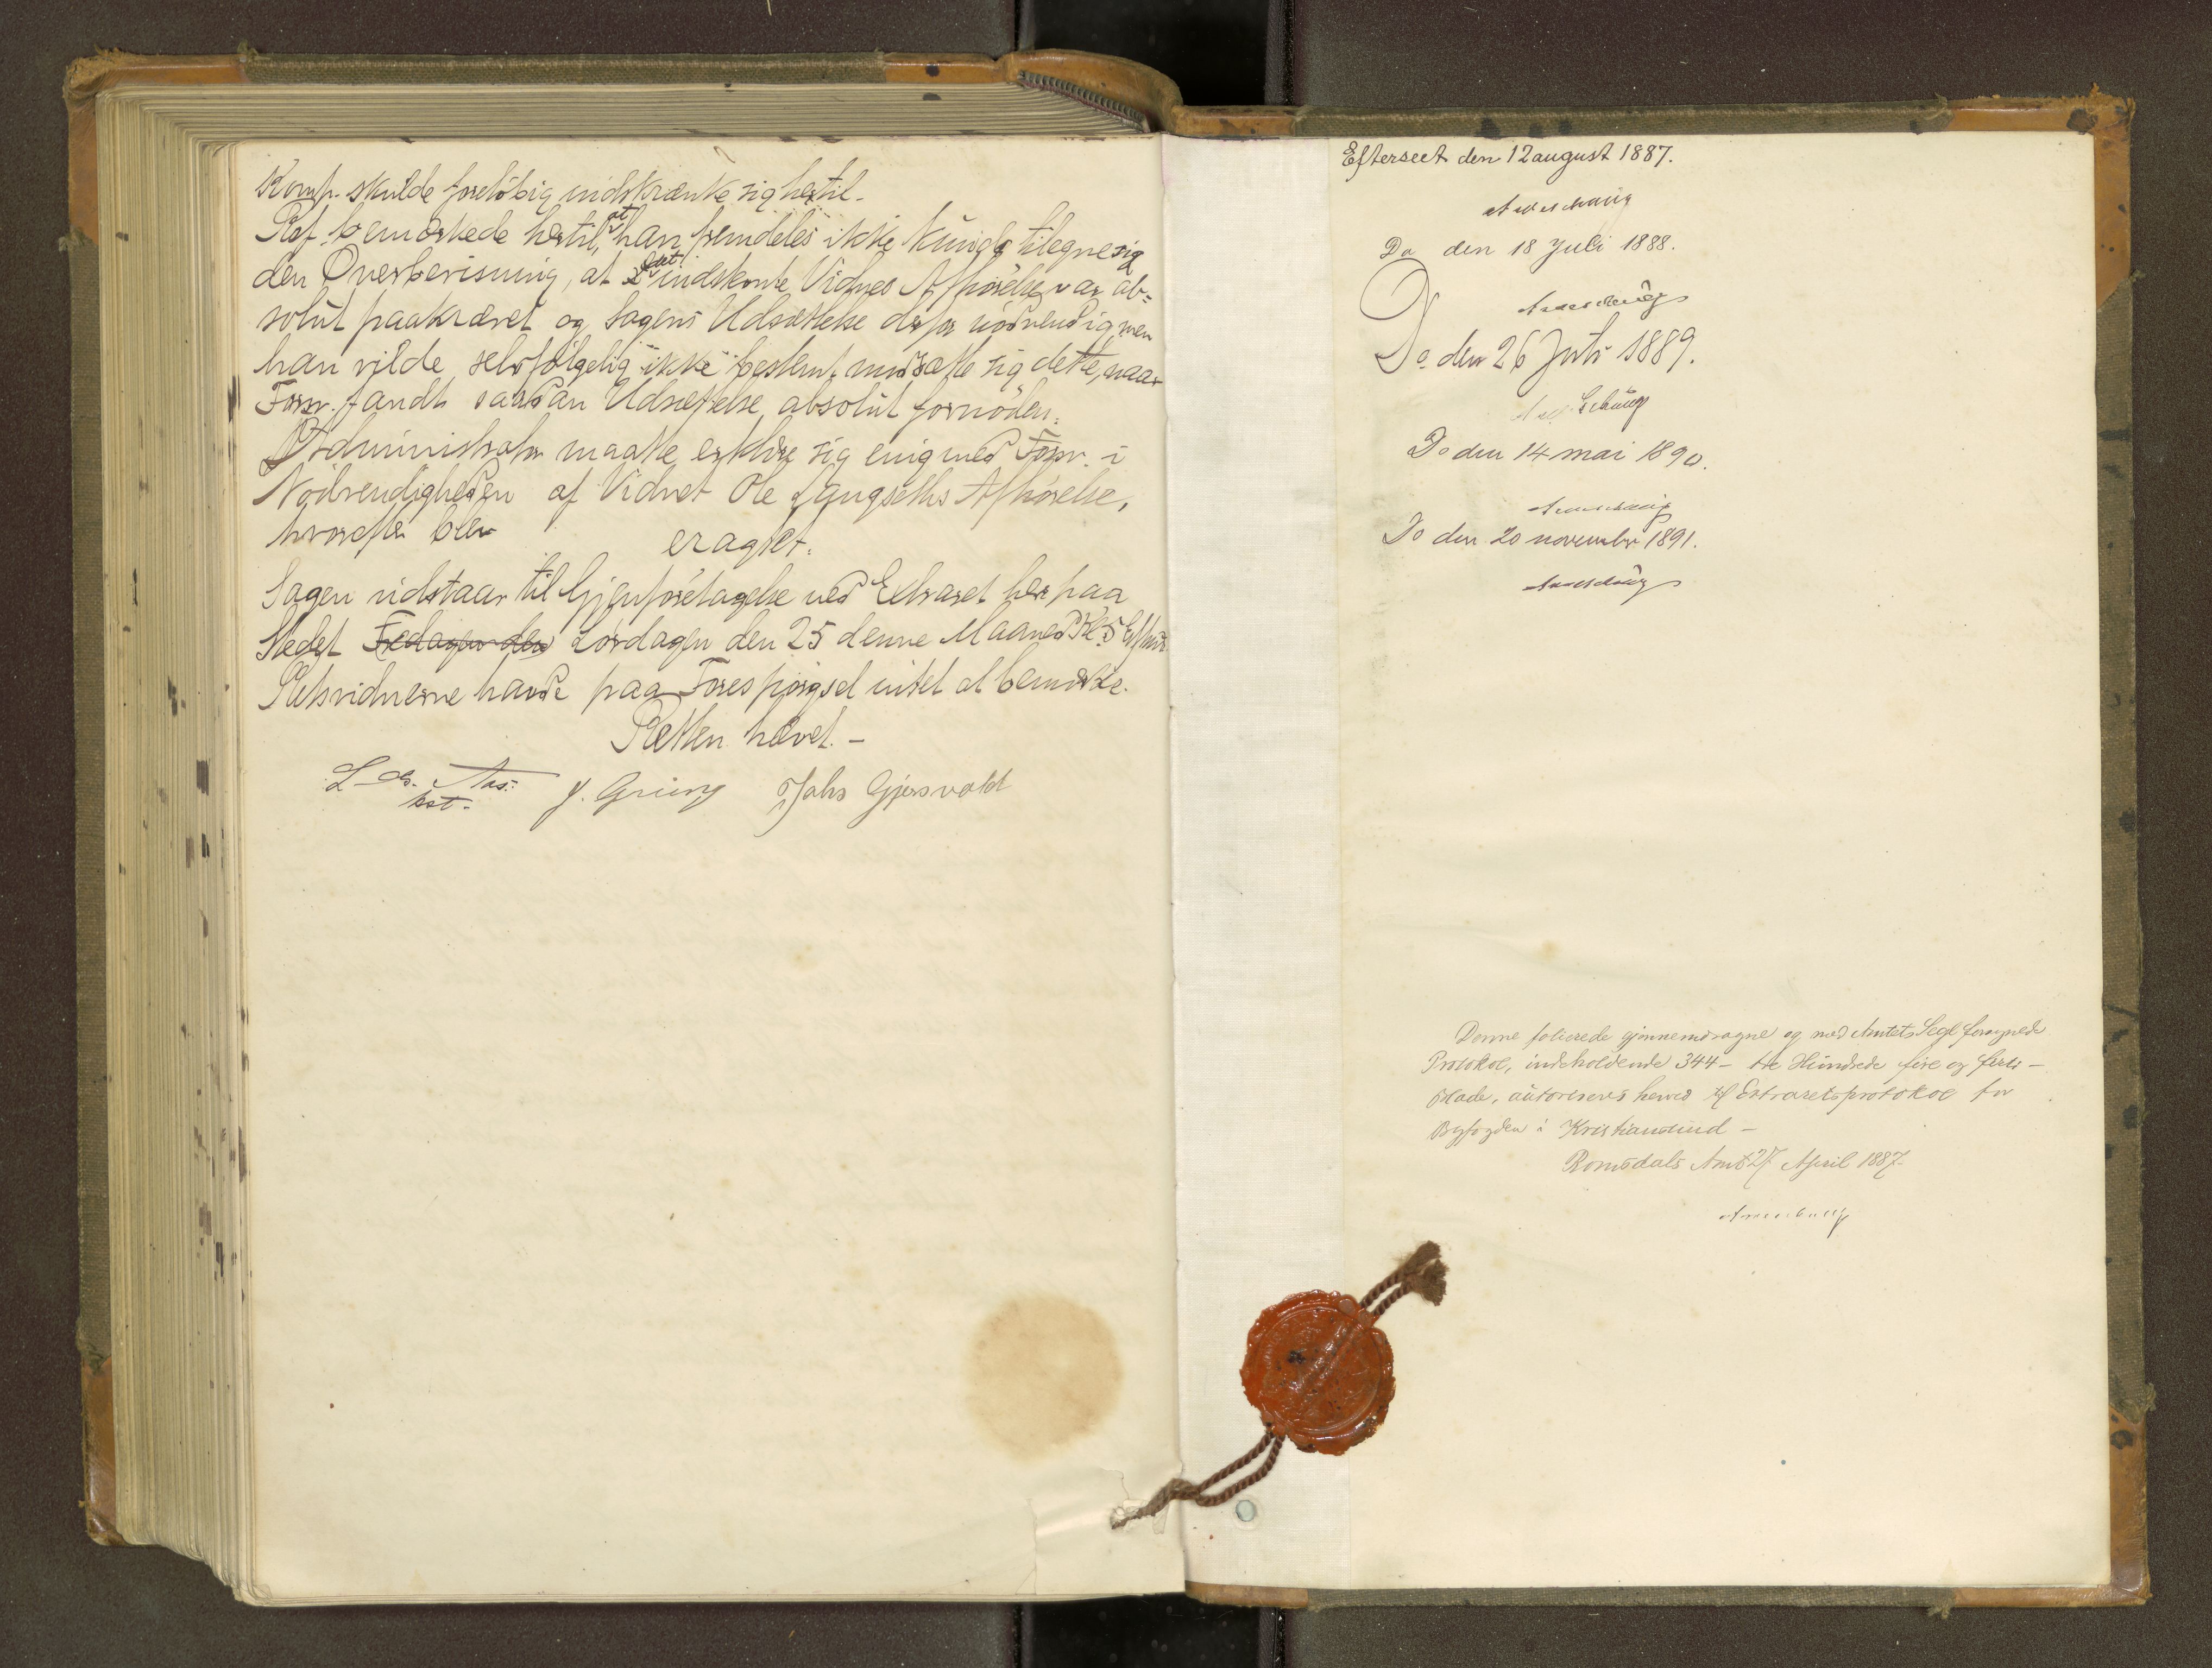 Komp. skulde foreløbig indskrænke sig hertil.
Ref. bemærkede hertil, at han fremdeles ikke kunde tilegne sig
den Overbevisning, at det indstevnte Vidnes Afhørelse var ab-
solut paakrævet og Sagens Udsættelse derfor nødvendig, men
han vilde selvfølgelig ikke bestemt modsætte sig dette, naar
Forsv. fandt saadan Udsættelse absolut fornøden.
Administrator maatte erklære sig enig med Forsv. i
Nødvendigheden af Vidnet Ole Afhørelse,
hvorefter blev
eragtet:
Sagen udstaar til Gjenforetagelse ved Extraret her paa
Stedet Fredagen den Lørdagen den 25 denne Maaned Kl. 5 Efterm.
Retsvidnerne havde paa Forespørgsel intet at bemærke.
Retten hævet. –
kst. J. Grieg Johs Gjersvold
Efterseet den 12 august 1887.
Do den 18 Juli 1888.
Do den 26 Juli 1889.
Do den 14 mai 1890.
Do den 20 november 1891.
Denne folierede gjennemdragne og med Amtets Segl forsynede
Protokol, indeholdende 344 – tre Hundrede fire og firti –
Blade, autoriseres herved til Extraretsprotokol for
Byfogden i Kristiansund –
Romsdals Amt 27 April 1887.